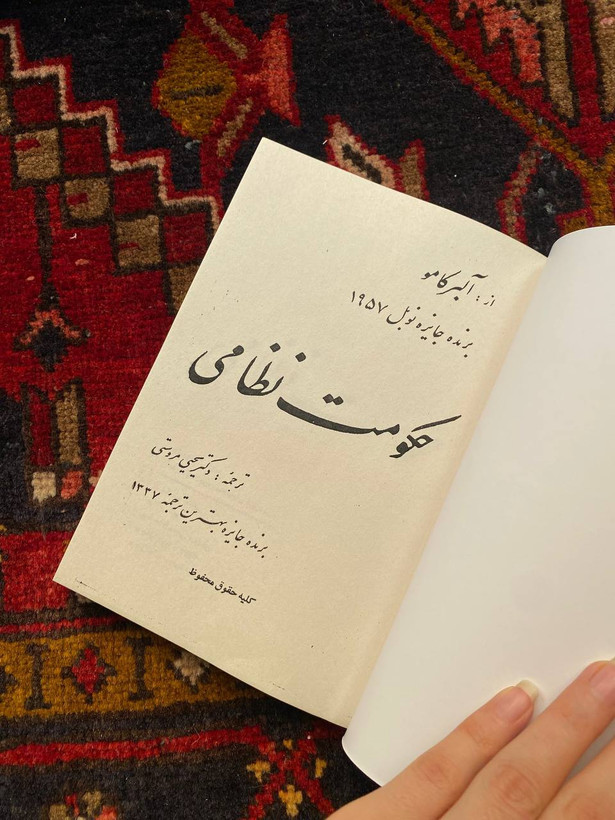 از : آلبر کامو
برنده جایزه نوبل ۱۹۵۷
حکومت نظامی
ترجمهٔ : دکتر یحیی مروستی
برنده جایزه بهترین ترجمهٔ ۱۳۳۷
کلیه حقوق محفوظ